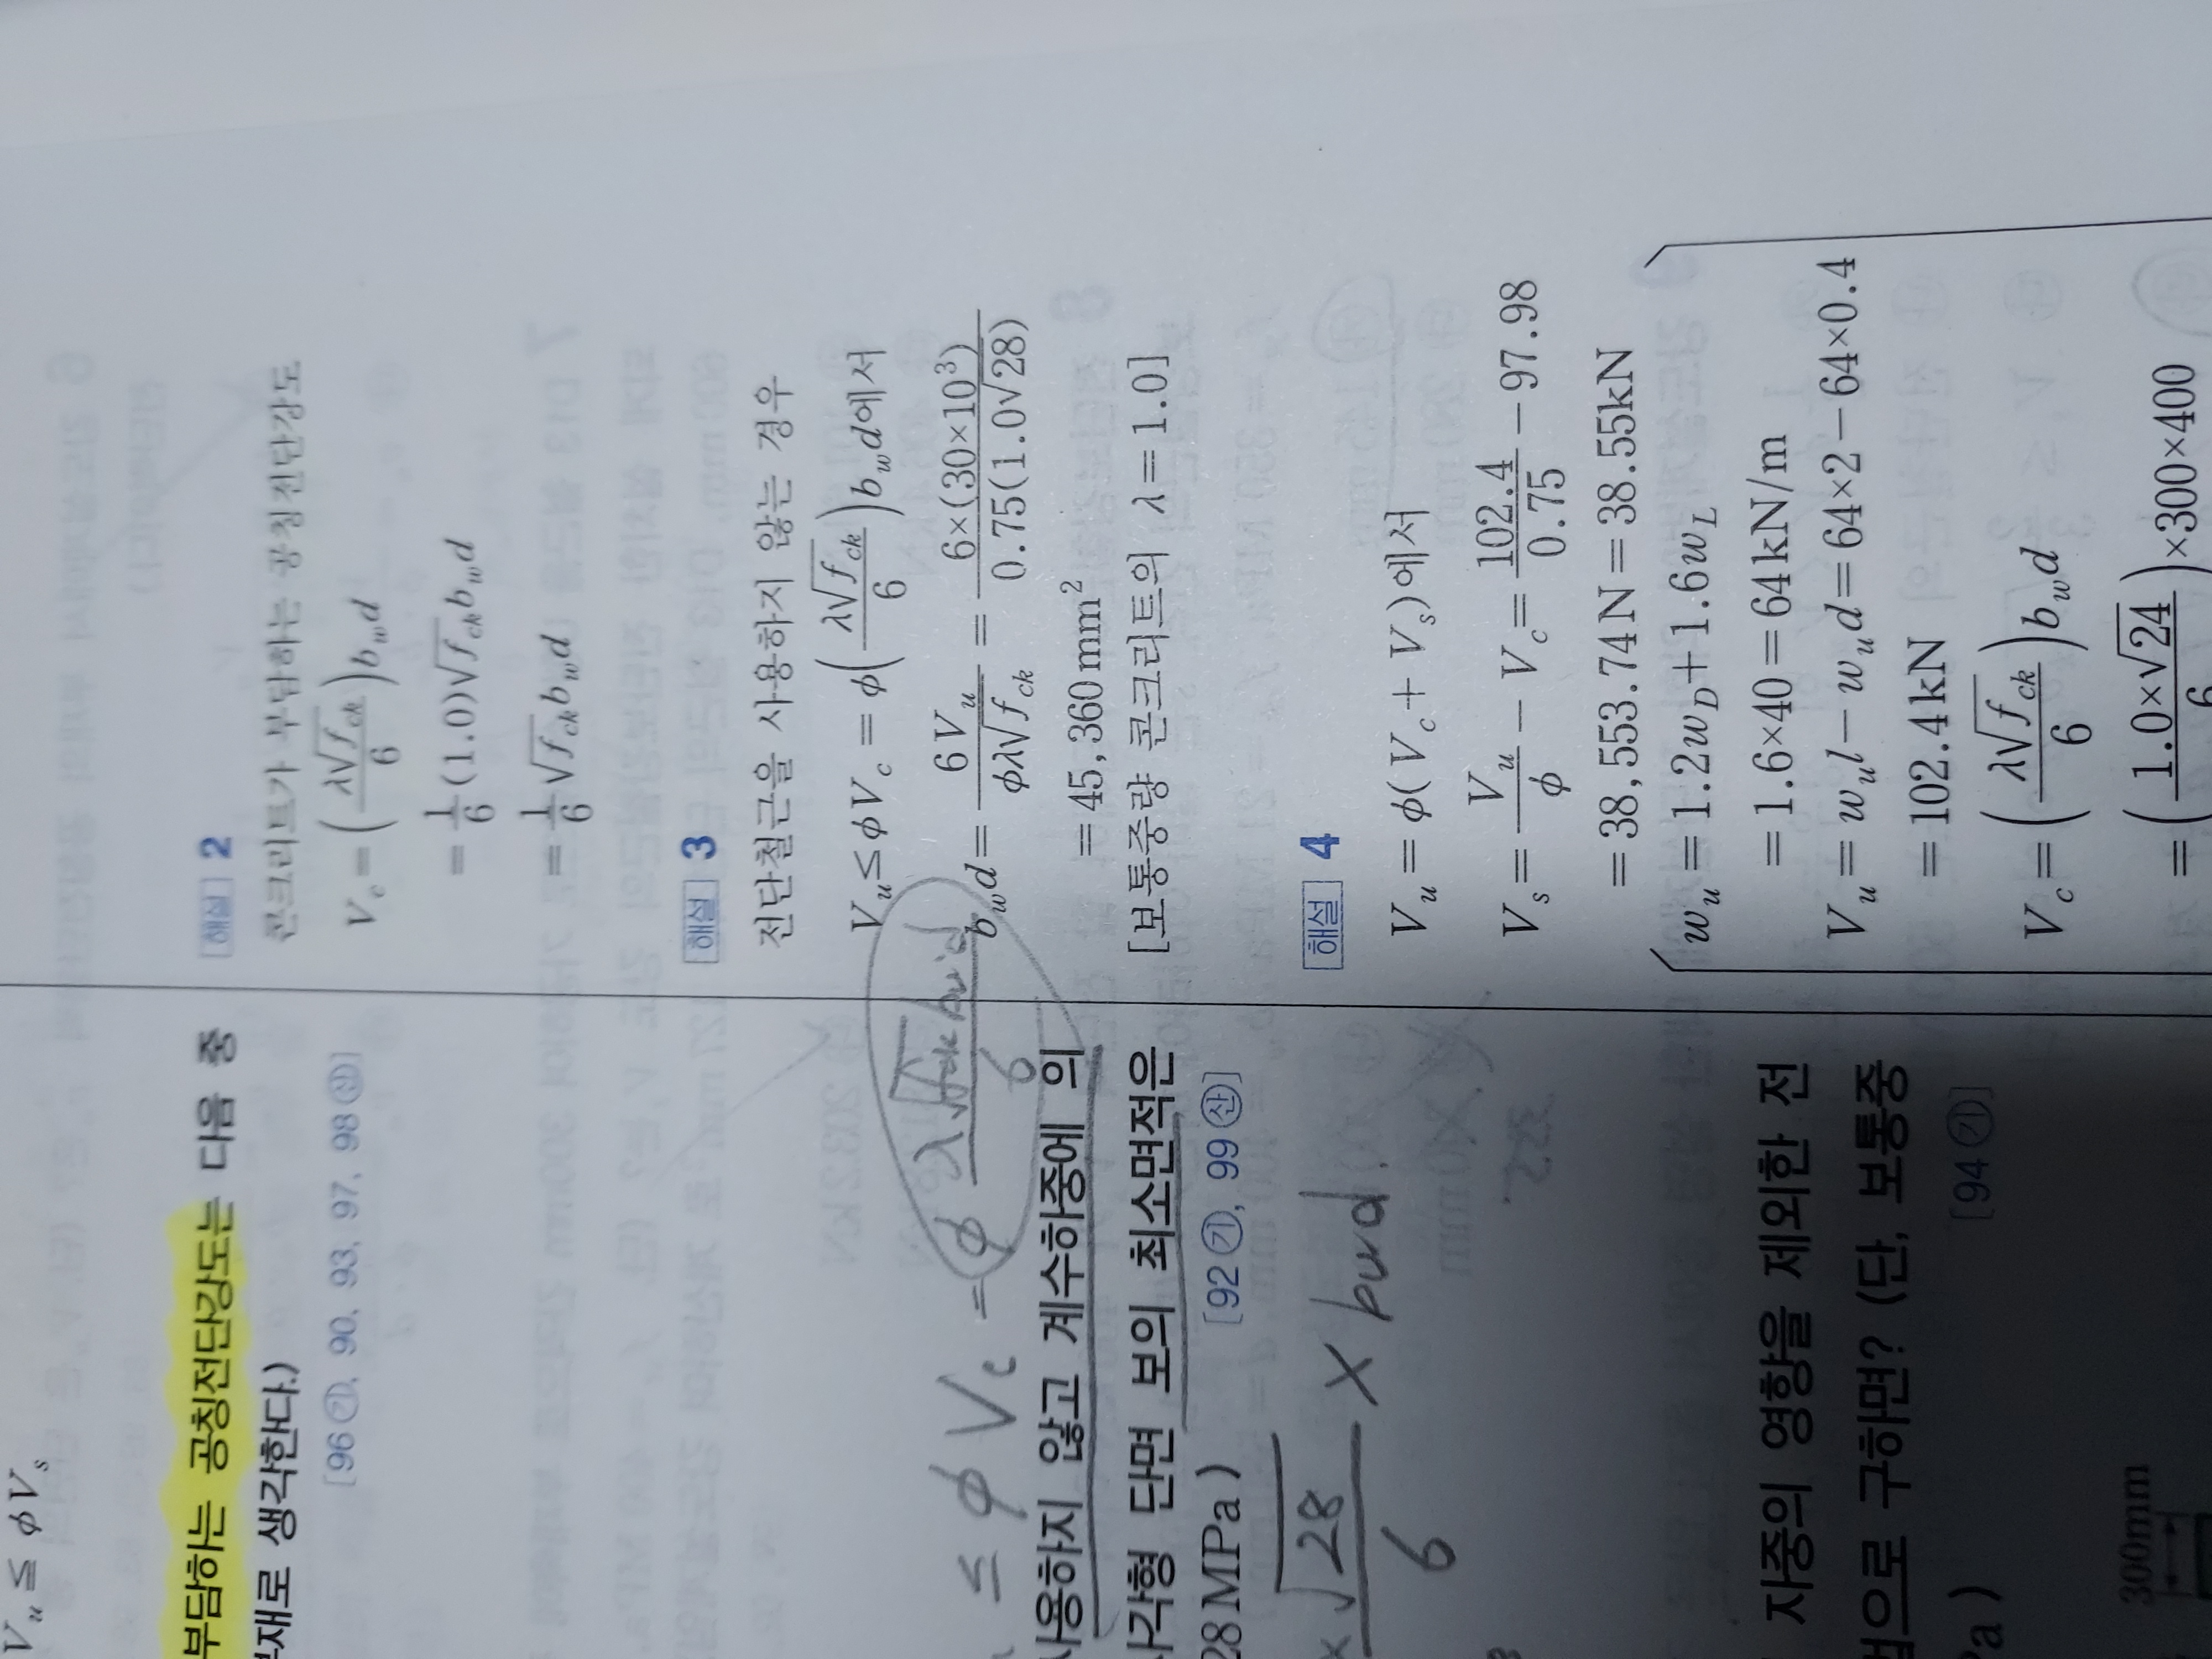 V_u ≤ φV_s
부담하는 공칭전단강도는 다음 중
부재로 생각한다.)
[96㉮, 90, 93, 97, 98㉯]
≤ φV_c = φ λ√fck bw·d / 6
사용하지 않고 계수하중에 의
사각형 단면 보의 최소면적은
28MPa)
[92㉮, 99㉯]
×√28 / 6 × bwd
자중의 영향을 제외한 전
법으로 구하면? (단, 보통중
[94㉮]
300mm
해설 2
콘크리트가 부담하는 공칭전단강도
V_c = (λ√f_ck / 6) b_w d
= 1/6 (1.0)√f_ck b_w d
= 1/6 √f_ck b_w d
해설 3
전단철근을 사용하지 않는 경우
V_u ≤ φV_c = φ(λ√f_ck / 6) b_w d에서
b_w d = 6V_u / φλ√f_ck = 6×(30×10³) / 0.75(1.0√28)
= 45,360mm²
[보통중량 콘크리트의 λ = 1.0]
해설 4
V_u = φ(V_c + V_s)에서
V_s = V_u / φ − V_c = 102.4 / 0.75 − 97.98
= 38,553.74N = 38.55kN
w_u = 1.2w_D + 1.6w_L
= 1.6×40 = 64kN/m
V_u = w_u l − w_u d = 64×2 − 64×0.4
= 102.4kN
V_c = (λ√f_ck / 6) b_w d
= (1.0×√24 / 6)×300×400